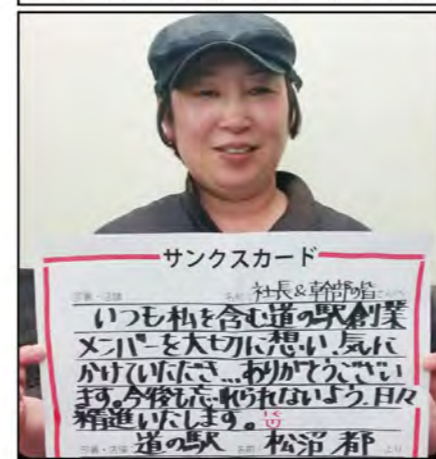 サンクスカード
社長&幹部の皆さんへ
いつも私を含む道の駅創業
メンバーを大切に想い、気に
かけていただき...ありがとうござい
ます。今後も忘れられないよう、日々
精進いたします。
道の駅 名前 松沼 都 より